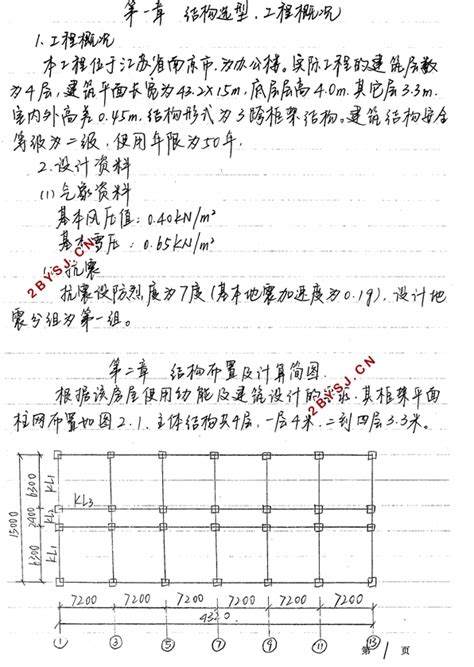 第一章 结构选型、工程概况
1.工程概况
本工程位于江苏省南京市,为办公楼。实际工程的建筑层数
为4层,建筑平面长宽为43.2×15m,底层层高4.0m,其它层3.3m.
室内外高差0.45m,结构形式为3跨框架结构。建筑结构安全
等级为二级,使用年限为50年.
2.设计资料
(1)气象资料
基本风压值:0.40KN/m²
基本雪压:0.65KN/m²
抗震
抗震设防烈度为7度(基本地震加速度为0.1g),设计地
震分组为第一组。
2BYSJ.CN
第二章 结构布置及计算简图
2BYSJ.CN
根据该房屋使用功能及建筑设计的要求,其框架平面
柱网布置如图2.1.主体结构共4层,一层4米,二到四层3.3米。
15000
6300 KL1
2400 KL2
6300 KL1
KL3
7200 7200 7200 7200 7200 7200
4320
① ③ ⑤ ⑦ ⑨ ⑪ ⑬
第 1 页